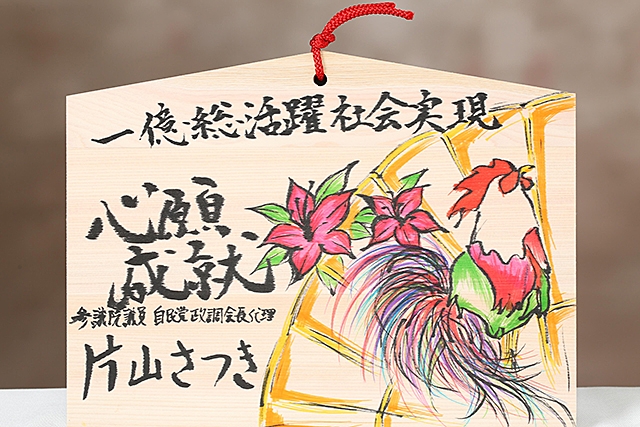 一億総活躍社会実現
心願
成就
参議院議員 自民党政調会長代理
片山さつき